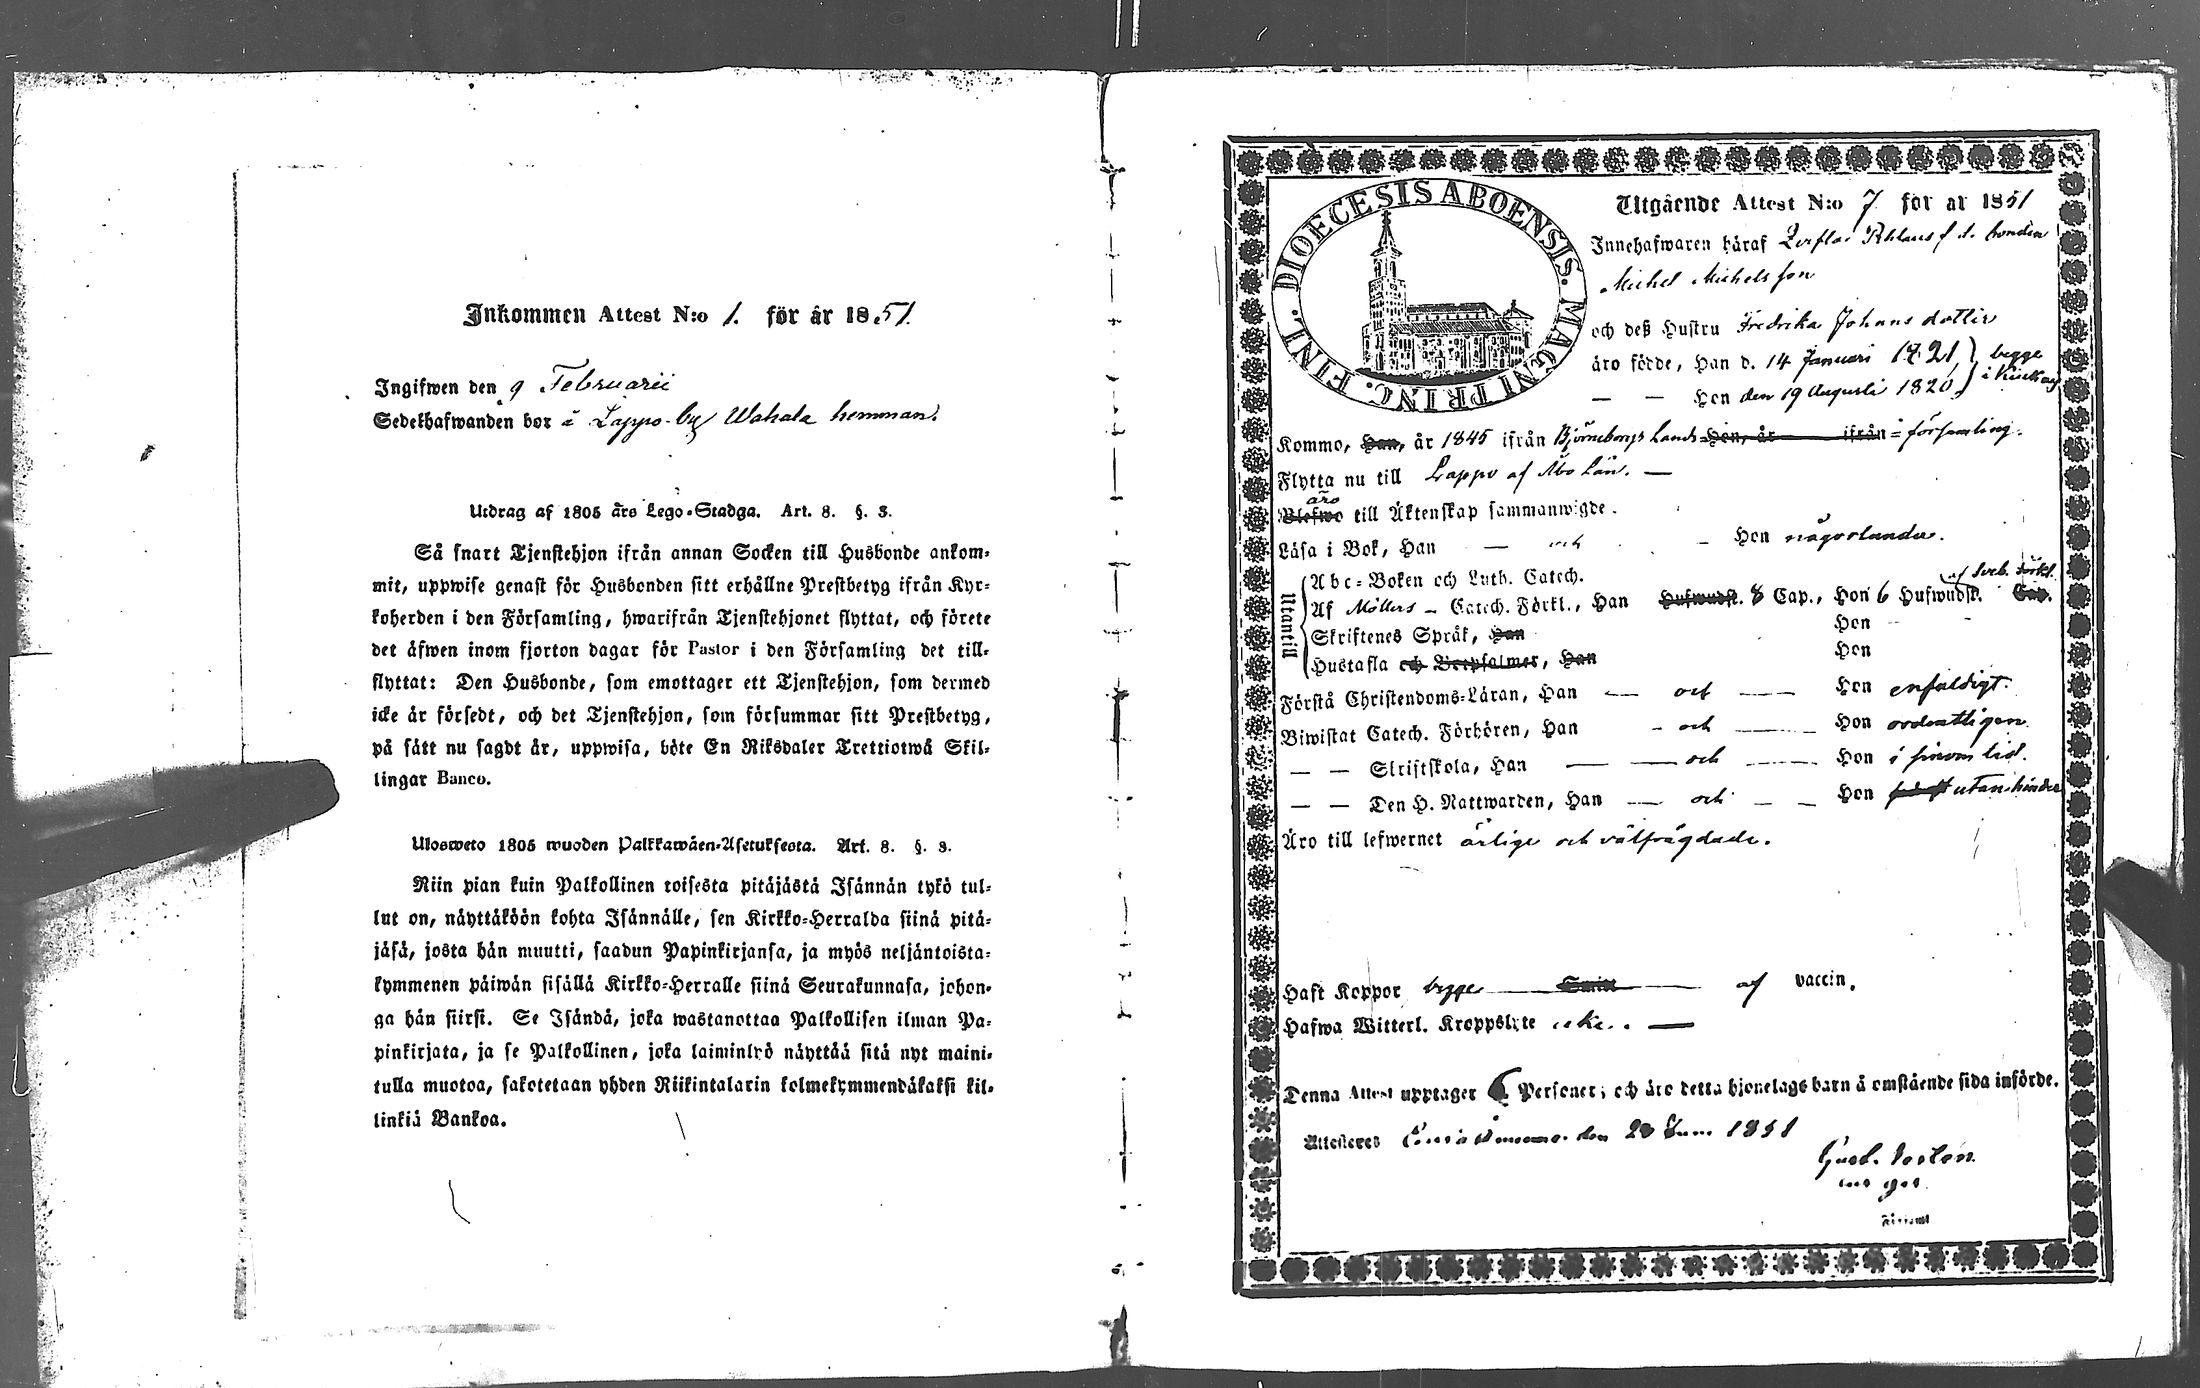 Inkommen Attest N:o 1. för år 1851.
Ingifwen den 9 Februarii
Sedelhafwanden bor å Lappo by Wahala hemman.
Utdrag af 1805 års Lego-Stadga. Art. 8. §. 3.
Så snart Tjenstehjon ifrån annan Socken till Husbonde ankom-
mit, uppwise genast för Husbonden sitt erhållne Prestbetyg ifrån Kyr-
koherden i den Församling, hwarifrån Tjenstehjonet flyttat, och förete
det äfwen inom fjorton dagar för Pastor i den Församling det till-
flyttat: Den Husbonde, som emottager ett Tjenstehjon, som dermed
icke är försedt, och det Tjenstehjon, som försummar sitt Prestbetyg,
på sätt nu sagdt är, uppwisa, böte En Riksdaler Trettiotwå Skil-
lingar Banco.
Ulosweto 1805 wuoden Palkkawäen-Asetuksesta. Art. 8. §. 3.
Niin pian kuin Palkollinen toisesta pitäjästä Isännän tykö tul-
lut on, näyttäköön kohta Isännälle, sen Kirkko-Herralda siinä pitä-
jäsä, josta hän muutti, saadun Papinkirjansa, ja myös neljäntoista-
kymmenen päiwän sisällä Kirkko-Herralle siinä Seurakunnasa, johon-
ga hän siirsi. Se Isändä, joka wastanottaa Palkollisen ilman Pa-
pinkirjata, ja se Palkollinen, joka laiminlyö näyttää sitä nyt maini-
tulla muotoa, sakotetaan yhden Riikintalarin kolmekymmendäkaksi kil-
linkiä Bankoa.
DIOECESIS ABOENSIS. MAGNI PRINC. FINL.
Utgående Attest N:o 7 för år 1851
Innehafwaren häraf f. d. bonden
Michel Michelsson
och deß Hustru Fredrika Johans dotter
äro födde, Han d. 14 Januari 1821 begge
— — Hon den 19 Augusti 1820 i
Kommo, Han, år 1845 ifrån Björneborgs Lands Hon, år ifrån församling.
Flytta nu till Lappo af Åbo Län. —
äro
Blefwo till Äktenskap sammanwigde.
Läsa i Bok, Han — och — Hon någorlunda.
Utantill
Abc-Boken och Luth. Catech.
af Sveb. Förkl.
Af Möllers Catech. Förkl., Han Hufwudst. 8 Cap., Hon 6 Hufwudst. Cap.
Skriftenes Språk, Han Hon
Hustafla och Botpsalmer, Han Hon
Förstå Christendoms-Läran, Han — och — Hon enfaldigt.
Biwistat Catech. Förhören, Han — och — Hon ordentligen.
— — Skriftskola, Han — och — Hon i sinom tid.
— — Den H. Nattwarden, Han — och — Hon utan hinder
Äro till lefwernet ärlige och välfrägdade.
Haft Koppor begge — — af vaccin.
Hafwa Witterl. Kroppslyte icke. —
Denna Attest upptager 6 Personer; och äro detta hjonelags barn å omstående sida införde.
Attesteras den 28 Juni 1851
Gust.